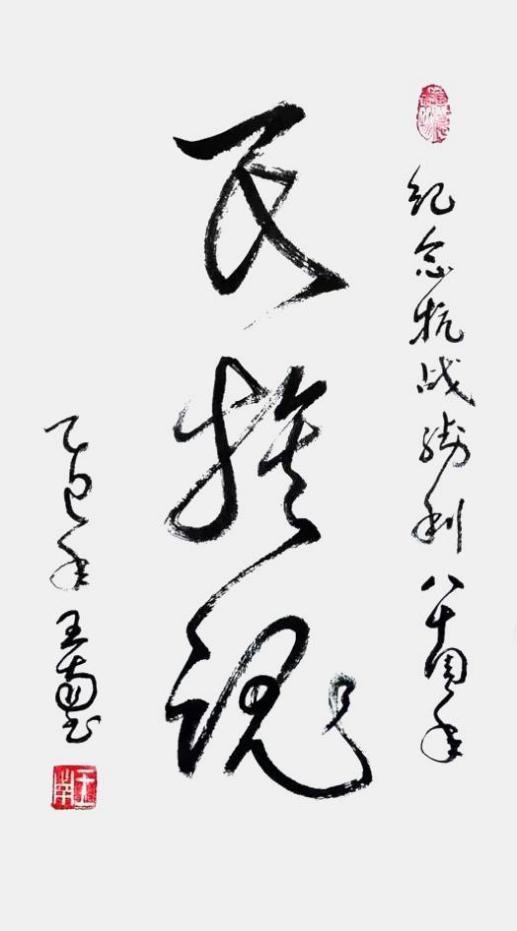 纪念抗战胜利八十周年
民族魂
乙巳年 王南书
王南